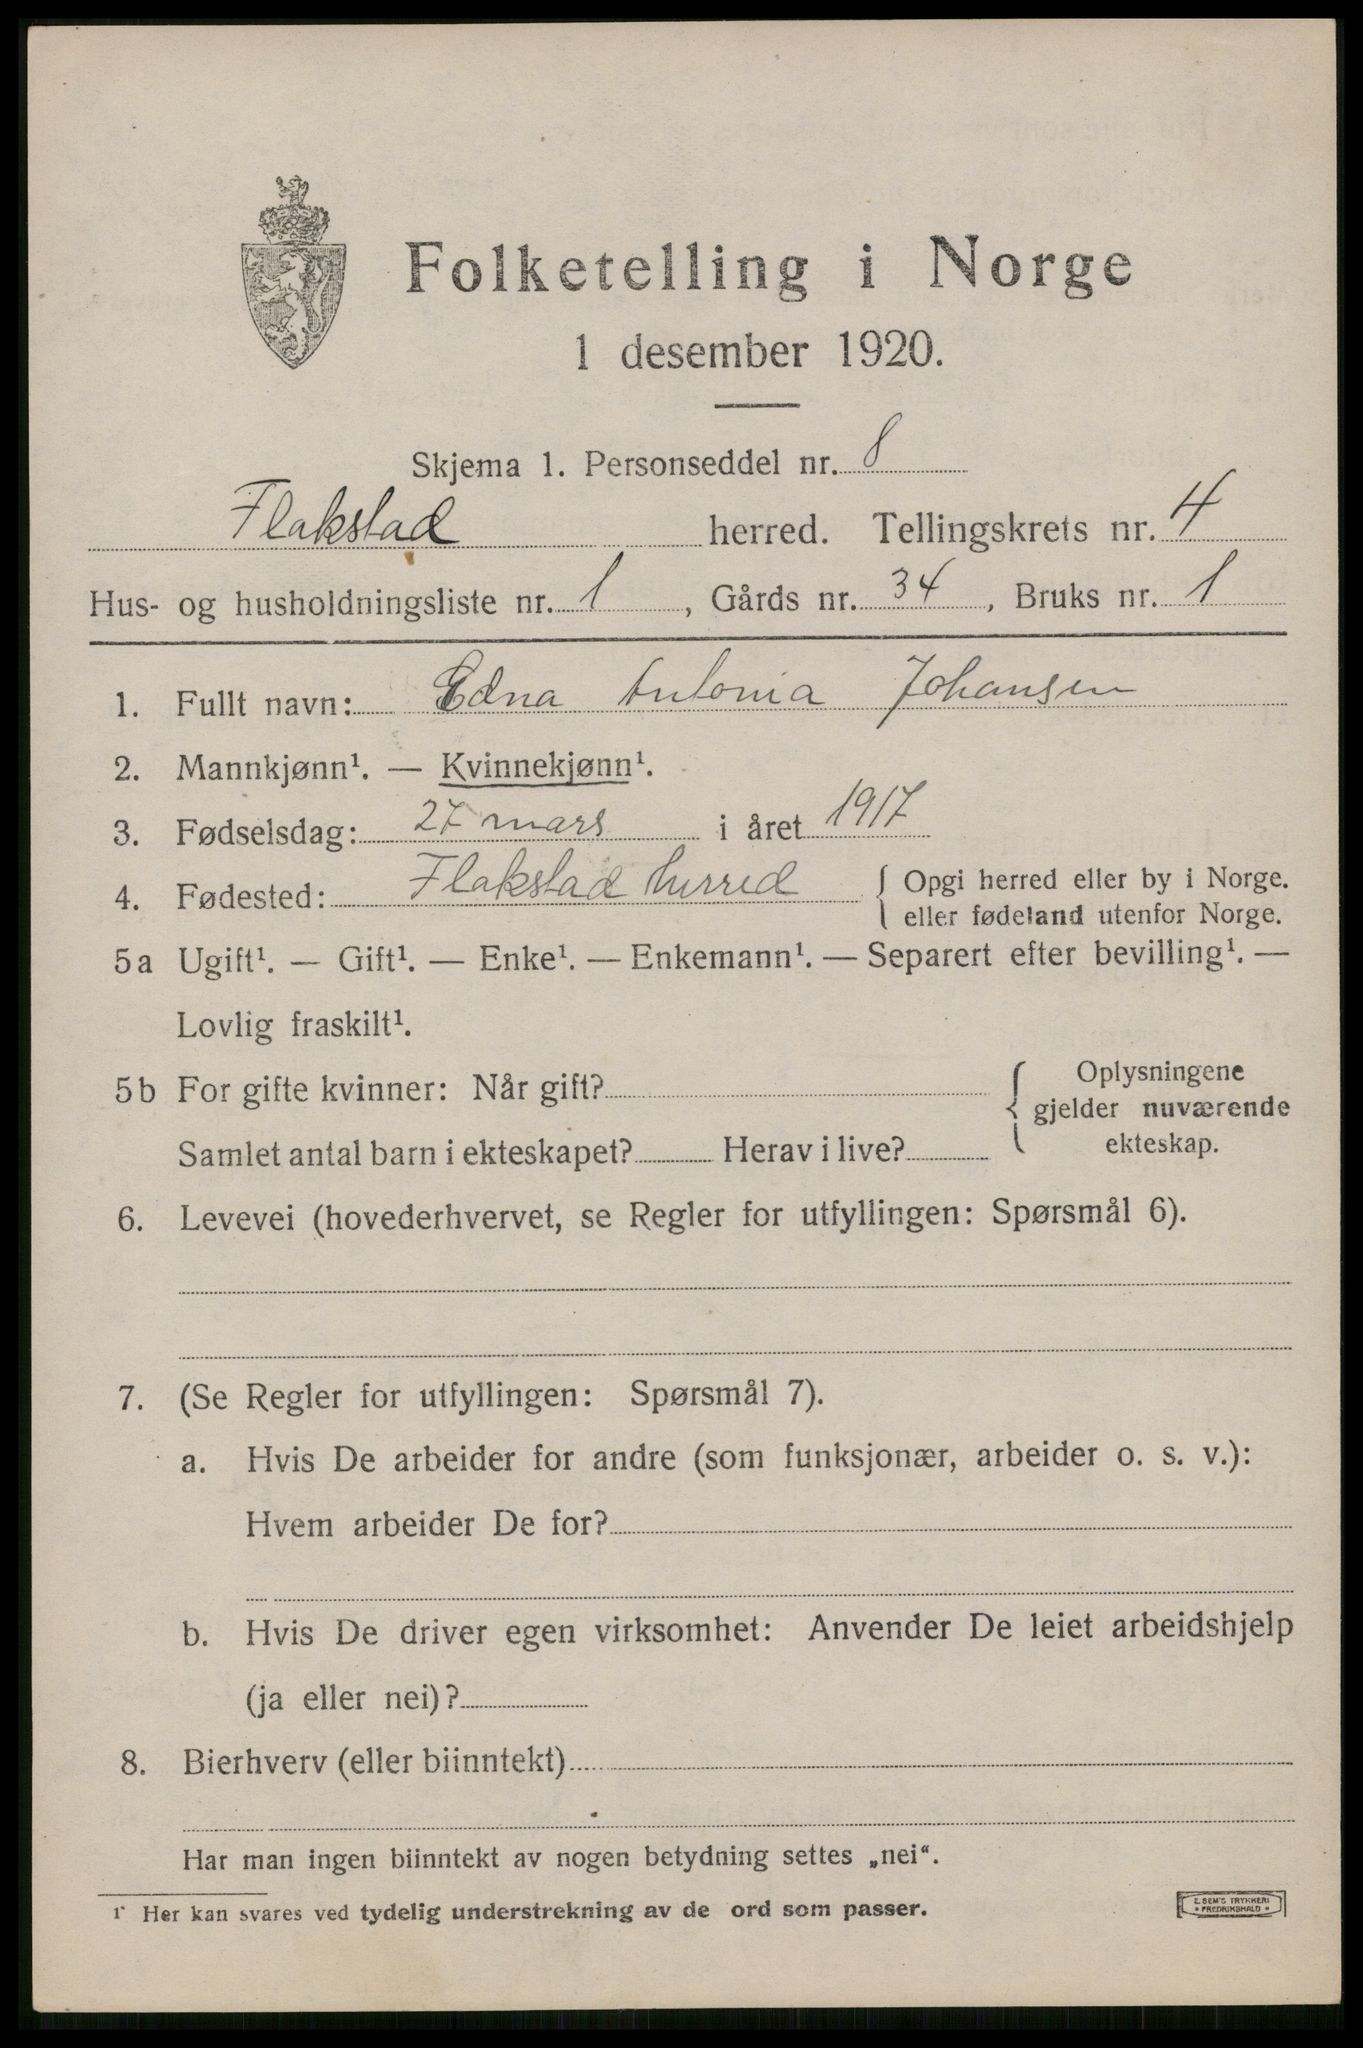 Folketelling i Norge
1 desember 1920.
Skjema 1. Personseddel nr. 8
Flakstad herred. Tellingskrets nr. 4
Hus- og husholdningsliste nr. 1, Gårds nr. 34, Bruks nr. 1
1. Fullt navn: Edna Antonia Johansen
2. Mannkjønn¹. — Kvinnekjønn¹.
3. Fødselsdag: 27 mars i året 1917
4. Fødested: Flakstad herred { Opgi herred eller by i Norge.
eller fødeland utenfor Norge.
5a Ugift¹. — Gift¹. — Enke¹. — Enkemann¹. — Separert efter bevilling¹. —
Lovlig fraskilt¹.
5b For gifte kvinner: Når gift?
Samlet antal barn i ekteskapet? Herav i live?
{ Oplysningene
gjelder nuværende
ekteskap.
6. Levevei (hovederhvervet, se Regler for utfyllingen: Spørsmål 6).
7. (Se Regler for utfyllingen: Spørsmål 7).
a. Hvis De arbeider for andre (som funksjonær, arbeider o. s. v.):
Hvem arbeider De for?
b. Hvis De driver egen virksomhet: Anvender De leiet arbeidshjelp
(ja eller nei)?
8. Bierhverv (eller biinntekt)
Har man ingen biinntekt av nogen betydning settes „nei“.
1 Her kan svares ved tydelig understrekning av de ord som passer.
E. SEM'S TRYKKERI
* FREDRIKSHALD *